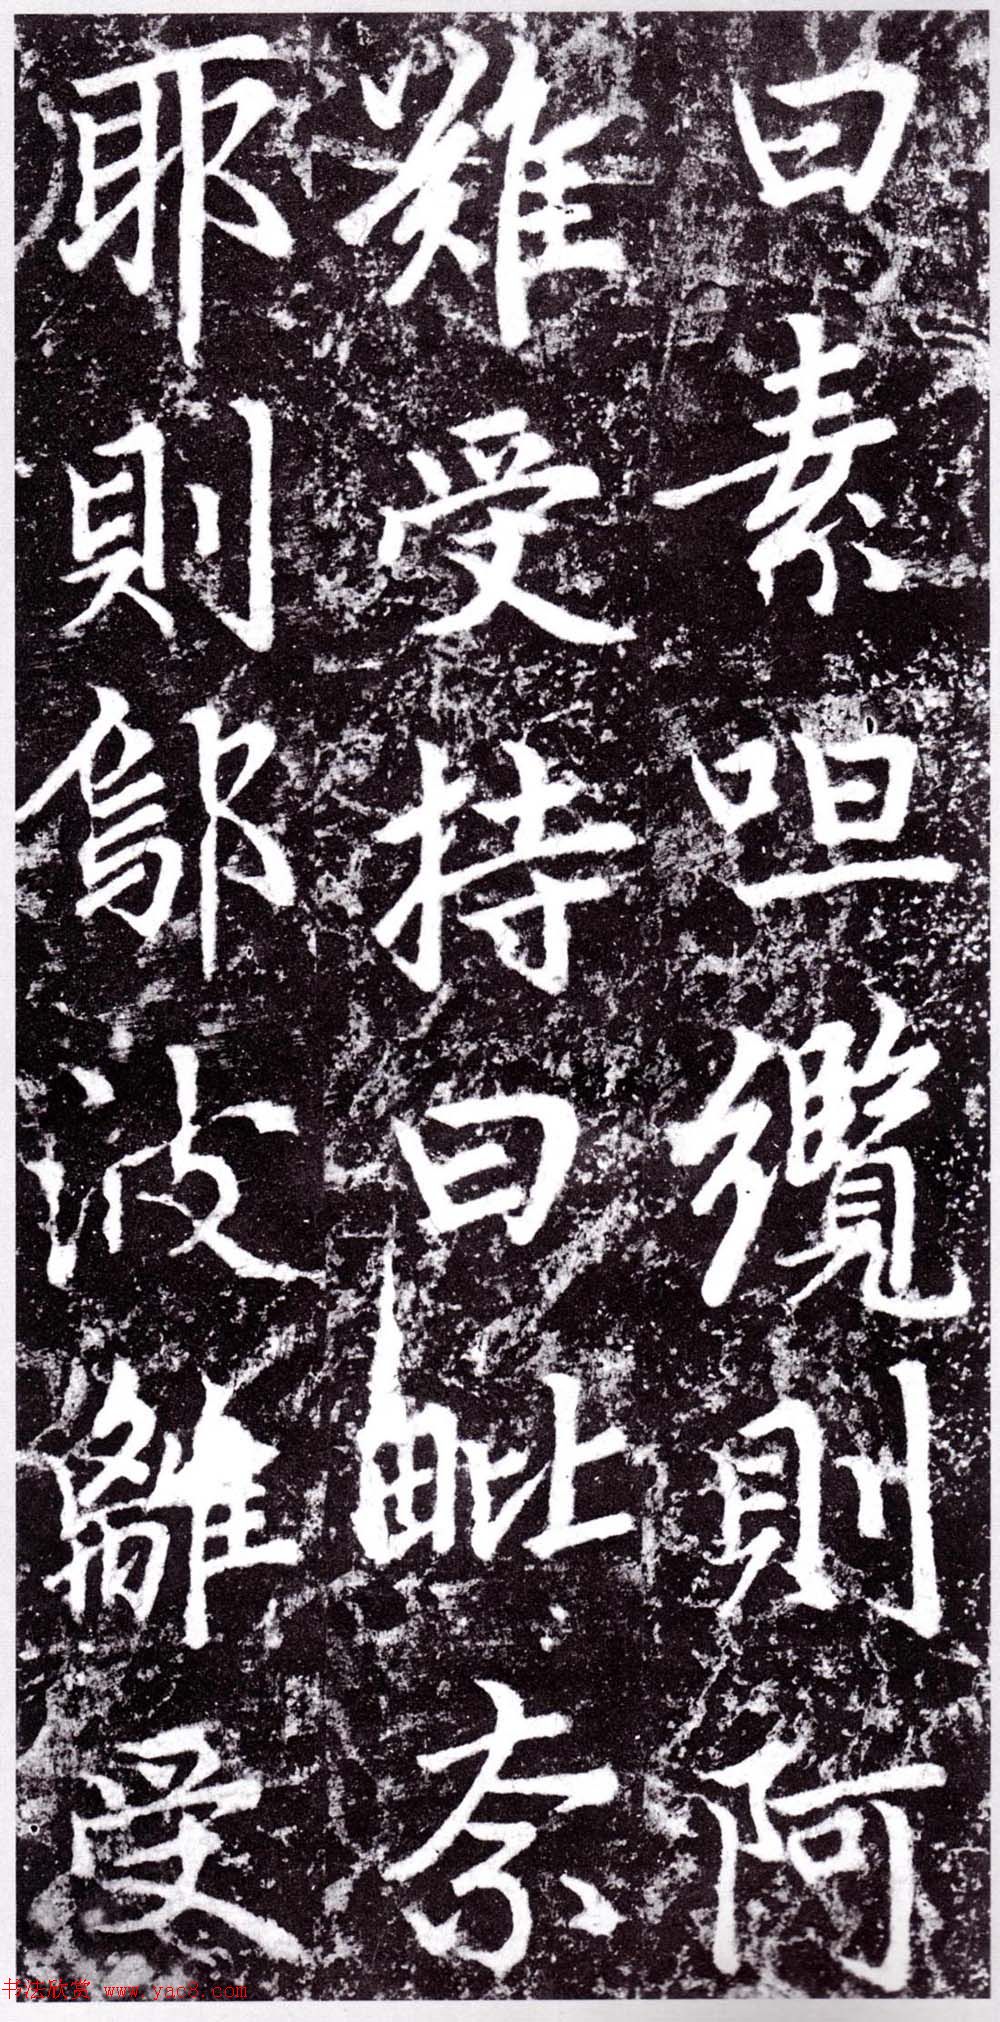 曰素呾纜則阿
難受持曰毗奈
耶則鄔波離受
书法欣赏 www.yac8.com